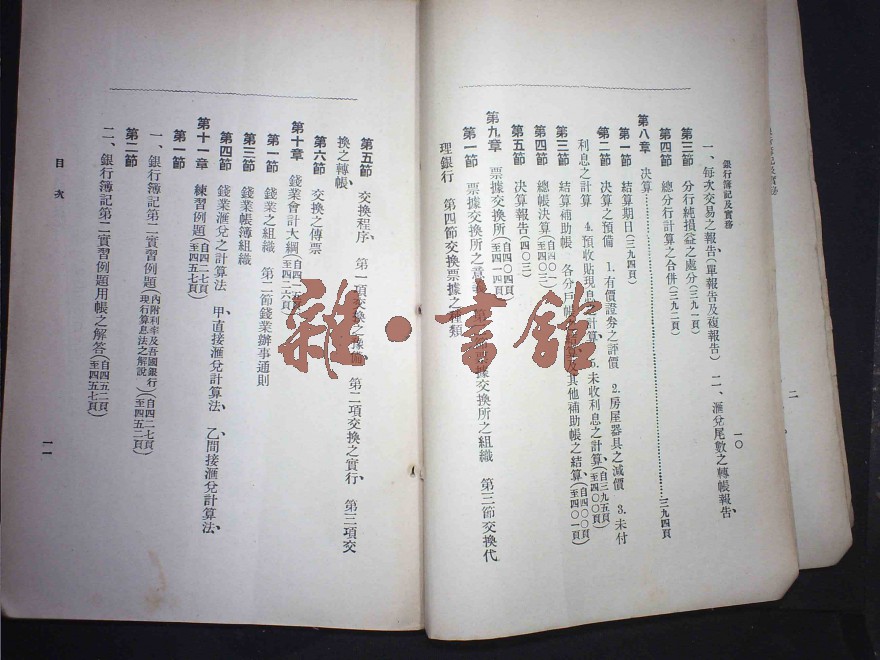 銀行簿記及實務
一〇
一、每次交易之報告(單報告及複報告) 二、滙兌尾數之轉帳報告、
第三節 分行純損益之處分(三九一頁)
第四節 總分行計算之合併(三九二頁)
第八章 決算……三九四頁
第一節 結算期日(三九四頁)
第二節 決算之預備 1.有價證券之評價 2.房屋器具之減價 3.未付
利息之計算 4.預收貼現息之計算、5.未收利息之計算(自三九五頁至四〇〇頁)
第三節 結算補助帳 各分戶帳 及其他補助帳之結算(自四〇〇頁至四〇一頁)
第四節 總帳決算(自四〇一至四〇三)
第五節 決算報告(四〇三)
第九章 票據交換所(自四〇四頁至四一四頁)
第一節 票據交換所之意義 票據交換所之組織 第三節交換代
理銀行 第四節交換票據之種類
第五節 交換程序、 第一項交換之預備、 第二項交換之實行、 第三項交
換之轉帳、
第六節 交換之傳票
第十章 錢業會計大綱(自四一五頁至四二六頁)
第一節 錢業之組織 第二節錢業辦事通則
第三節 錢業帳簿組織
第四節 錢業滙兌之計算法 甲、直接滙兌計算法、 乙、間接滙兌計算法、
第十一章 練習例題(自四二七頁至四五七頁)
第一節
一、銀行簿記第二實習例題(內附利率及吾國銀行現行算息法之解說)(自四二七頁至四五二頁)
第二節
二、銀行簿記第二實習例題用帳之解答(自四五二頁至四五七頁)
目次
一一
二
雜·書館